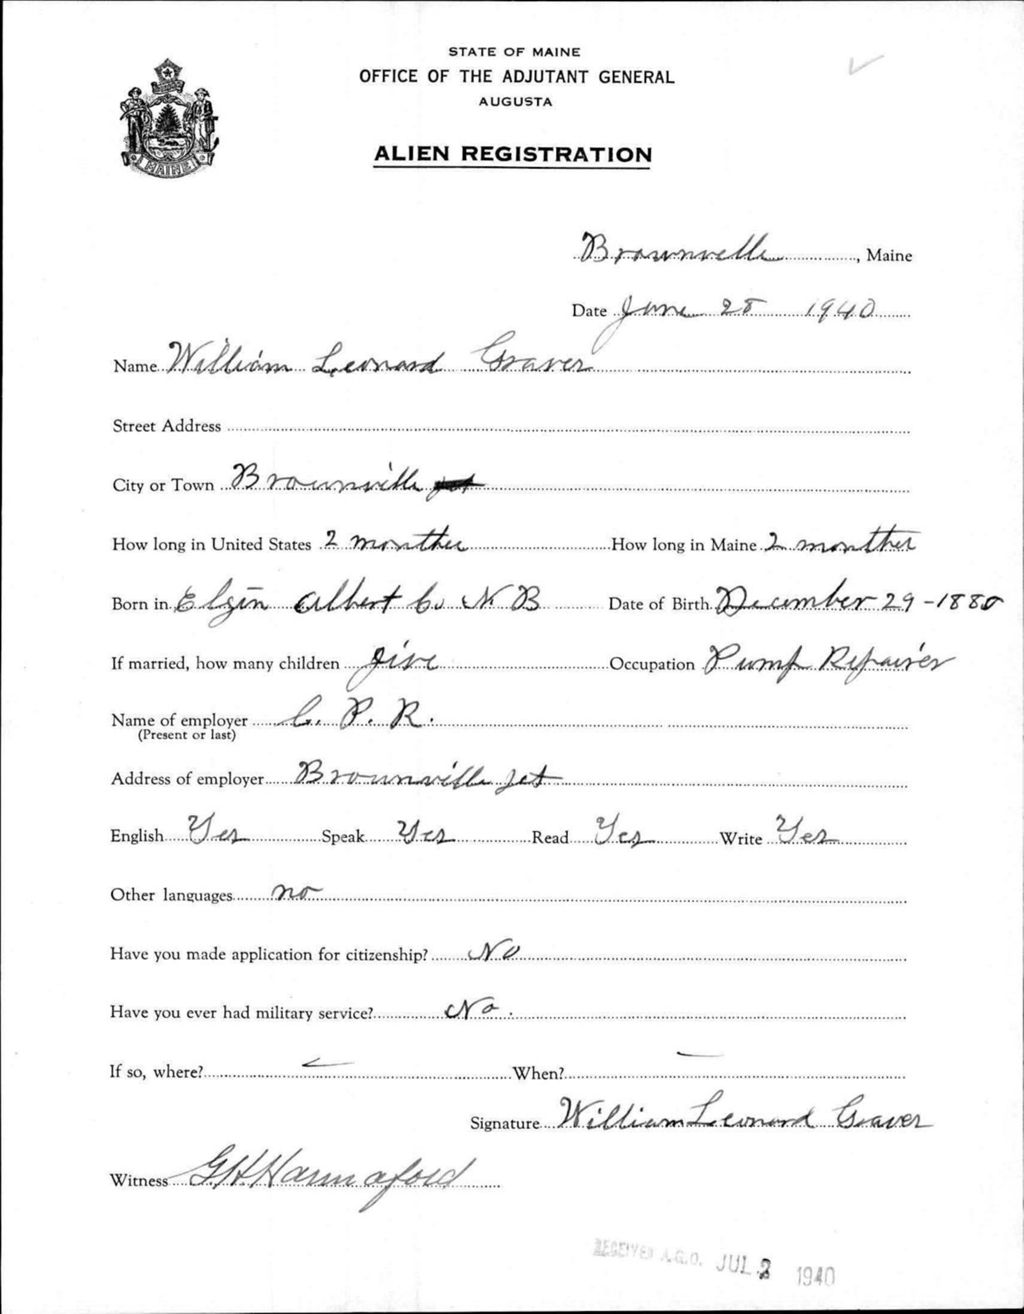 STATE OF MAINE
OFFICE OF THE ADJUTANT GENERAL
AUGUSTA
ALIEN REGISTRATION
MAINE
Brownville, Maine
Date June 28 1940
Name William Leonard Graver
Street Address
City or Town Brownville
How long in United States 2 months How long in Maine 2 months
Born in Elgin Albert Co N B Date of Birth December 29-1880
If married, how many children five Occupation Pump Repairer
Name of employer C. P. R.
(Present or last)
Address of employer Brownville Jct
English Yes Speak Yes Read Yes Write Yes
Other languages no
Have you made application for citizenship? No
Have you ever had military service? No.
If so, where? - When? -
Signature William Leonard Graver
Witness G H Hannaford
RECEIVED A.G.O. JUL 2 1940